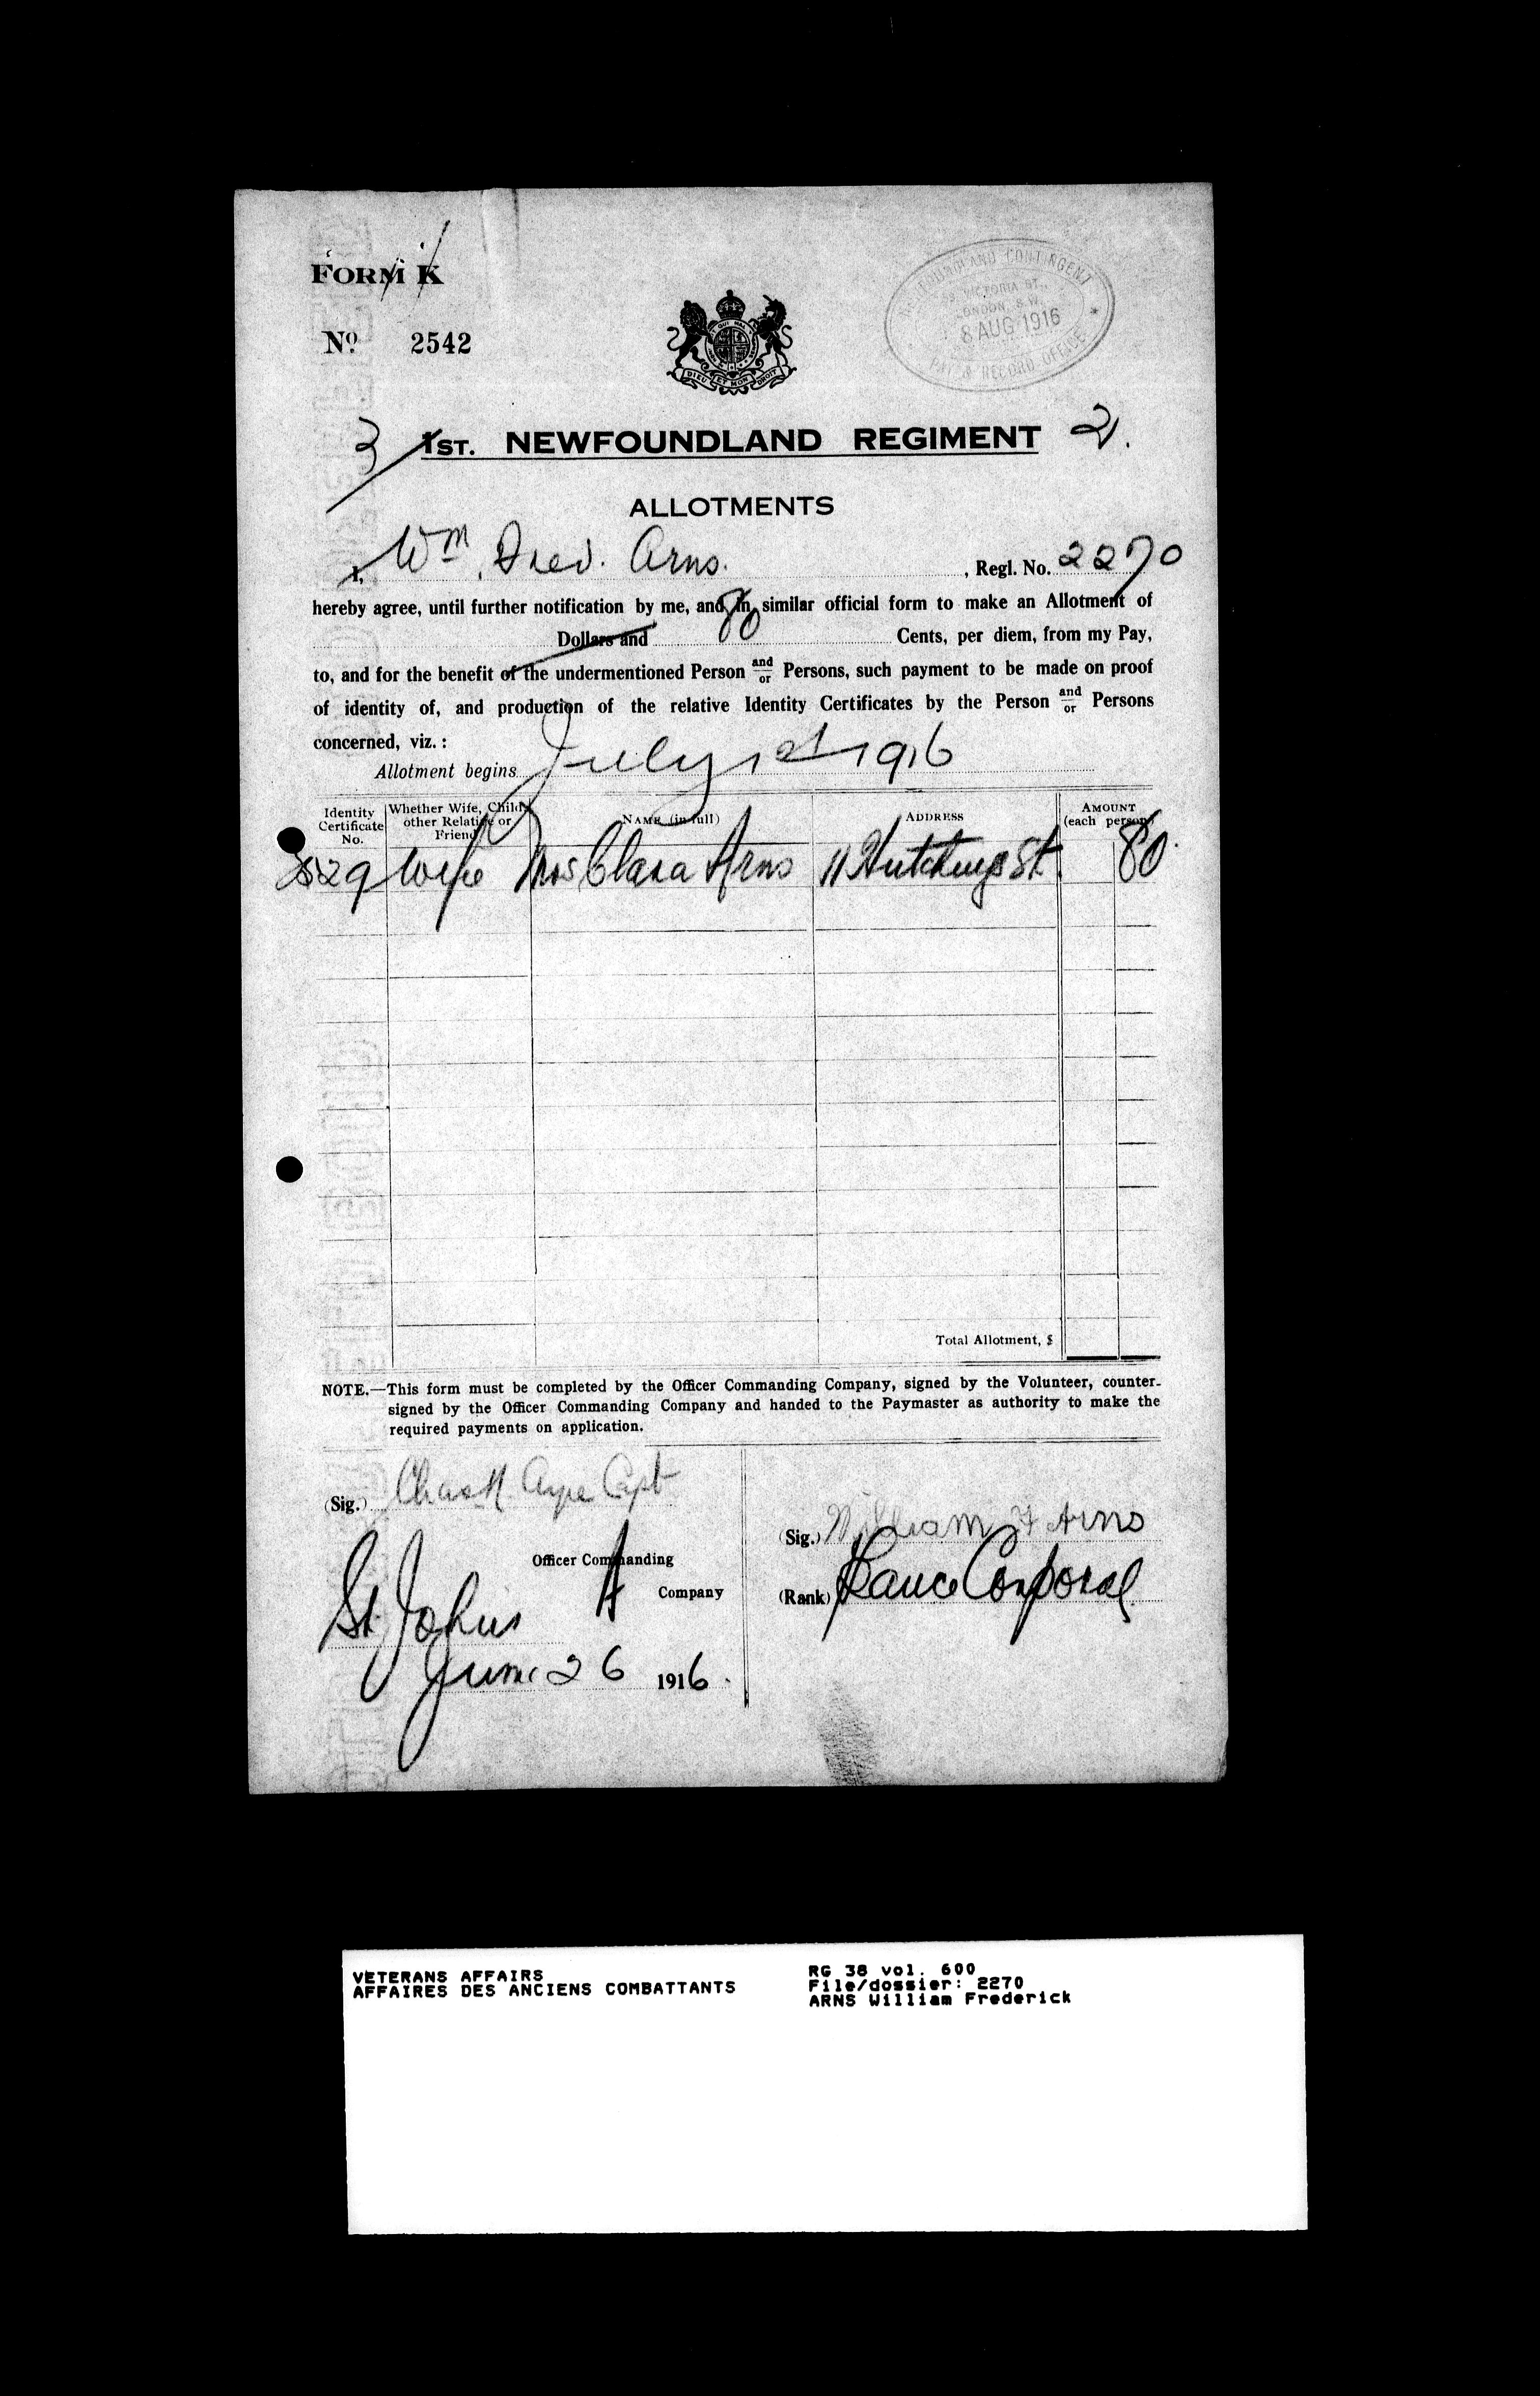 FORM K
NEWFOUNDLAND CONTINGENT
VICTORIA ST.,
LONDON, S.W.
8 AUG 1916
PAY & RECORD OFFICE
No. 2542
DIEU ET MON DROIT
3 1ST. NEWFOUNDLAND REGIMENT 2.
ALLOTMENTS
I, Wm. Fred. Arns. , Regl. No. 2270
hereby agree, until further notification by me, and in similar official form to make an Allotment of
Dollars and 80 Cents, per diem, from my Pay,
to, and for the benefit of the undermentioned Person and/or Persons, such payment to be made on proof
of identity of, and production of the relative Identity Certificates by the Person and/or Persons
concerned, viz. :
Allotment begins July 1st 1916
Identity Certificate No. Whether Wife, Child, other Relative or Friend NAME (in full) ADDRESS AMOUNT (each person)
2529 Wife Mrs Clara Arns 11 Hutchings St. 80.
Total Allotment, $
NOTE.—This form must be completed by the Officer Commanding Company, signed by the Volunteer, counter-
signed by the Officer Commanding Company and handed to the Paymaster as authority to make the
required payments on application.
(Sig.) Chas R. Ayre Capt
(Sig.) William F Arns
Officer Commanding
A Company
(Rank) Lance Corporal
St. Johns
June 26 1916.
VETERANS AFFAIRS
AFFAIRES DES ANCIENS COMBATTANTS
RG 38 vol. 600
File/dossier: 2270
ARNS William Frederick